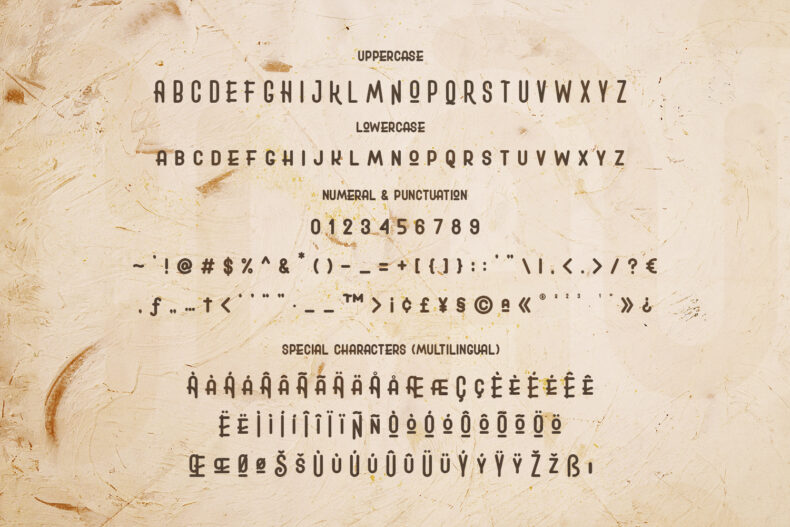 UPPERCASE
ABCDEFGHIJKLMNOPQRSTUVWXYZ
LOWERCASE
ABCDEFGHIJKLMNOPQRSTUVWXYZ
NUMERAL & PUNCTUATION
0123456789
~`!@#$%^&*()-_=+[{]}::'"\|,<.>/?€
‚ƒ„…†<
__™>¡¢£¥§©ª«
®
»¿
SPECIAL CHARACTERS (MULTILINGUAL)
ÀàÁáÂâÃãÄäÅåÆæÇçÈèÉéÊê
ËëÌìÍíÎîÏïÑñÒòÓóÔôÕõÖö
ŒœØøŠšÙùÚúÛûÜüÝýŸÿŽžßı